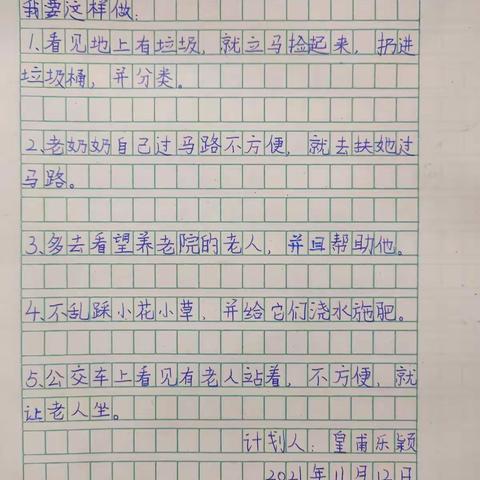 我要这样做:
1.看见地上有垃圾,就立马捡起来,扔进
垃圾桶,并分类。
2.老奶奶自己过马路不方便,就去扶她过
马路。
3.多去看望养老院的老人,并且帮助他。
4.不乱踩小花小草,并给它们浇水施肥。
5.公交车上看见有老人站着,不方便,就
让老人坐。
计划人:皇甫乐颖
2021年11月12日